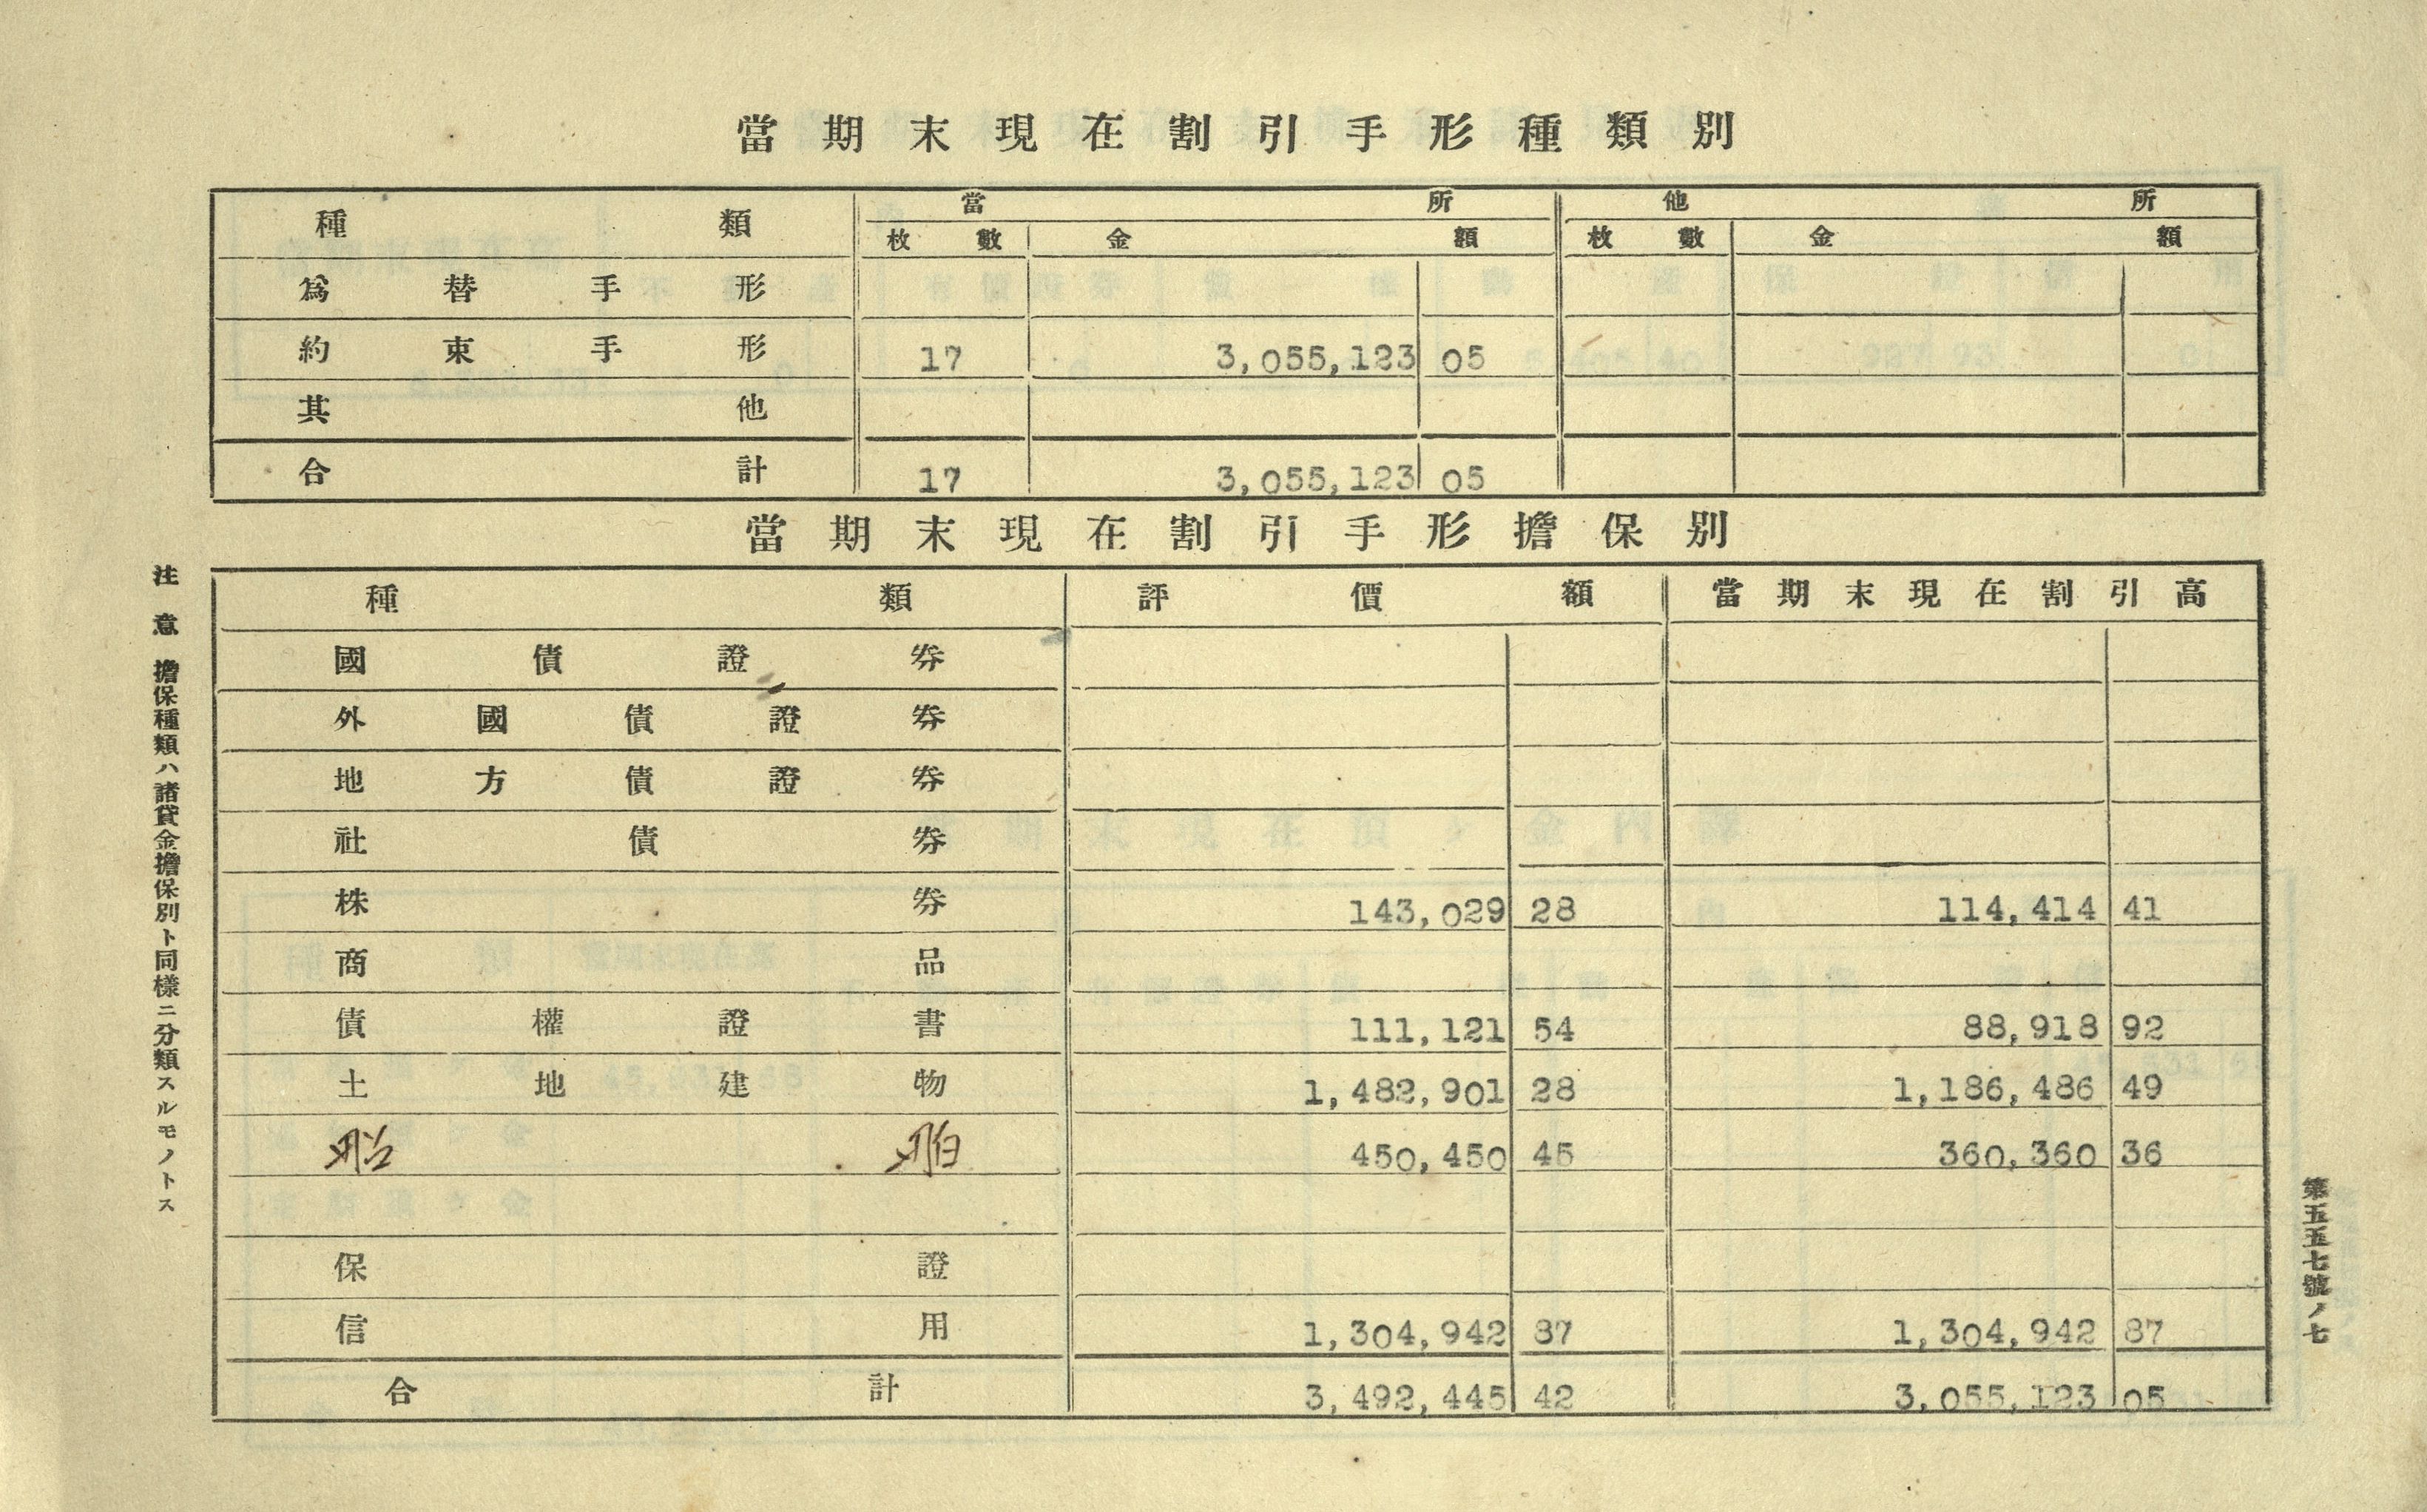 當期末現在割引手形種類別
種類 當所 他所
枚數 金額 枚數 金額
爲替手形
約束手形 17 3,055,123 05
其他
合計 17 3,055,123 05
當期末現在割引手形擔保別
種類 評價額 當期末現在割引高
國債證券
外國債證券
地方債證券
社債券
株券 143,029 28 114,414 41
商品
債權證書 111,121 54 88,918 92
土地建物 1,482,901 28 1,186,486 49
船舶 450,450 45 360,360 36
保證
信用 1,304,942 87 1,304,942 87
合計 3,492,445 42 3,055,123 05
注意 擔保種類ハ諸貸金擔保別ト同樣ニ分類スルモノトス
第五五七號ノ七